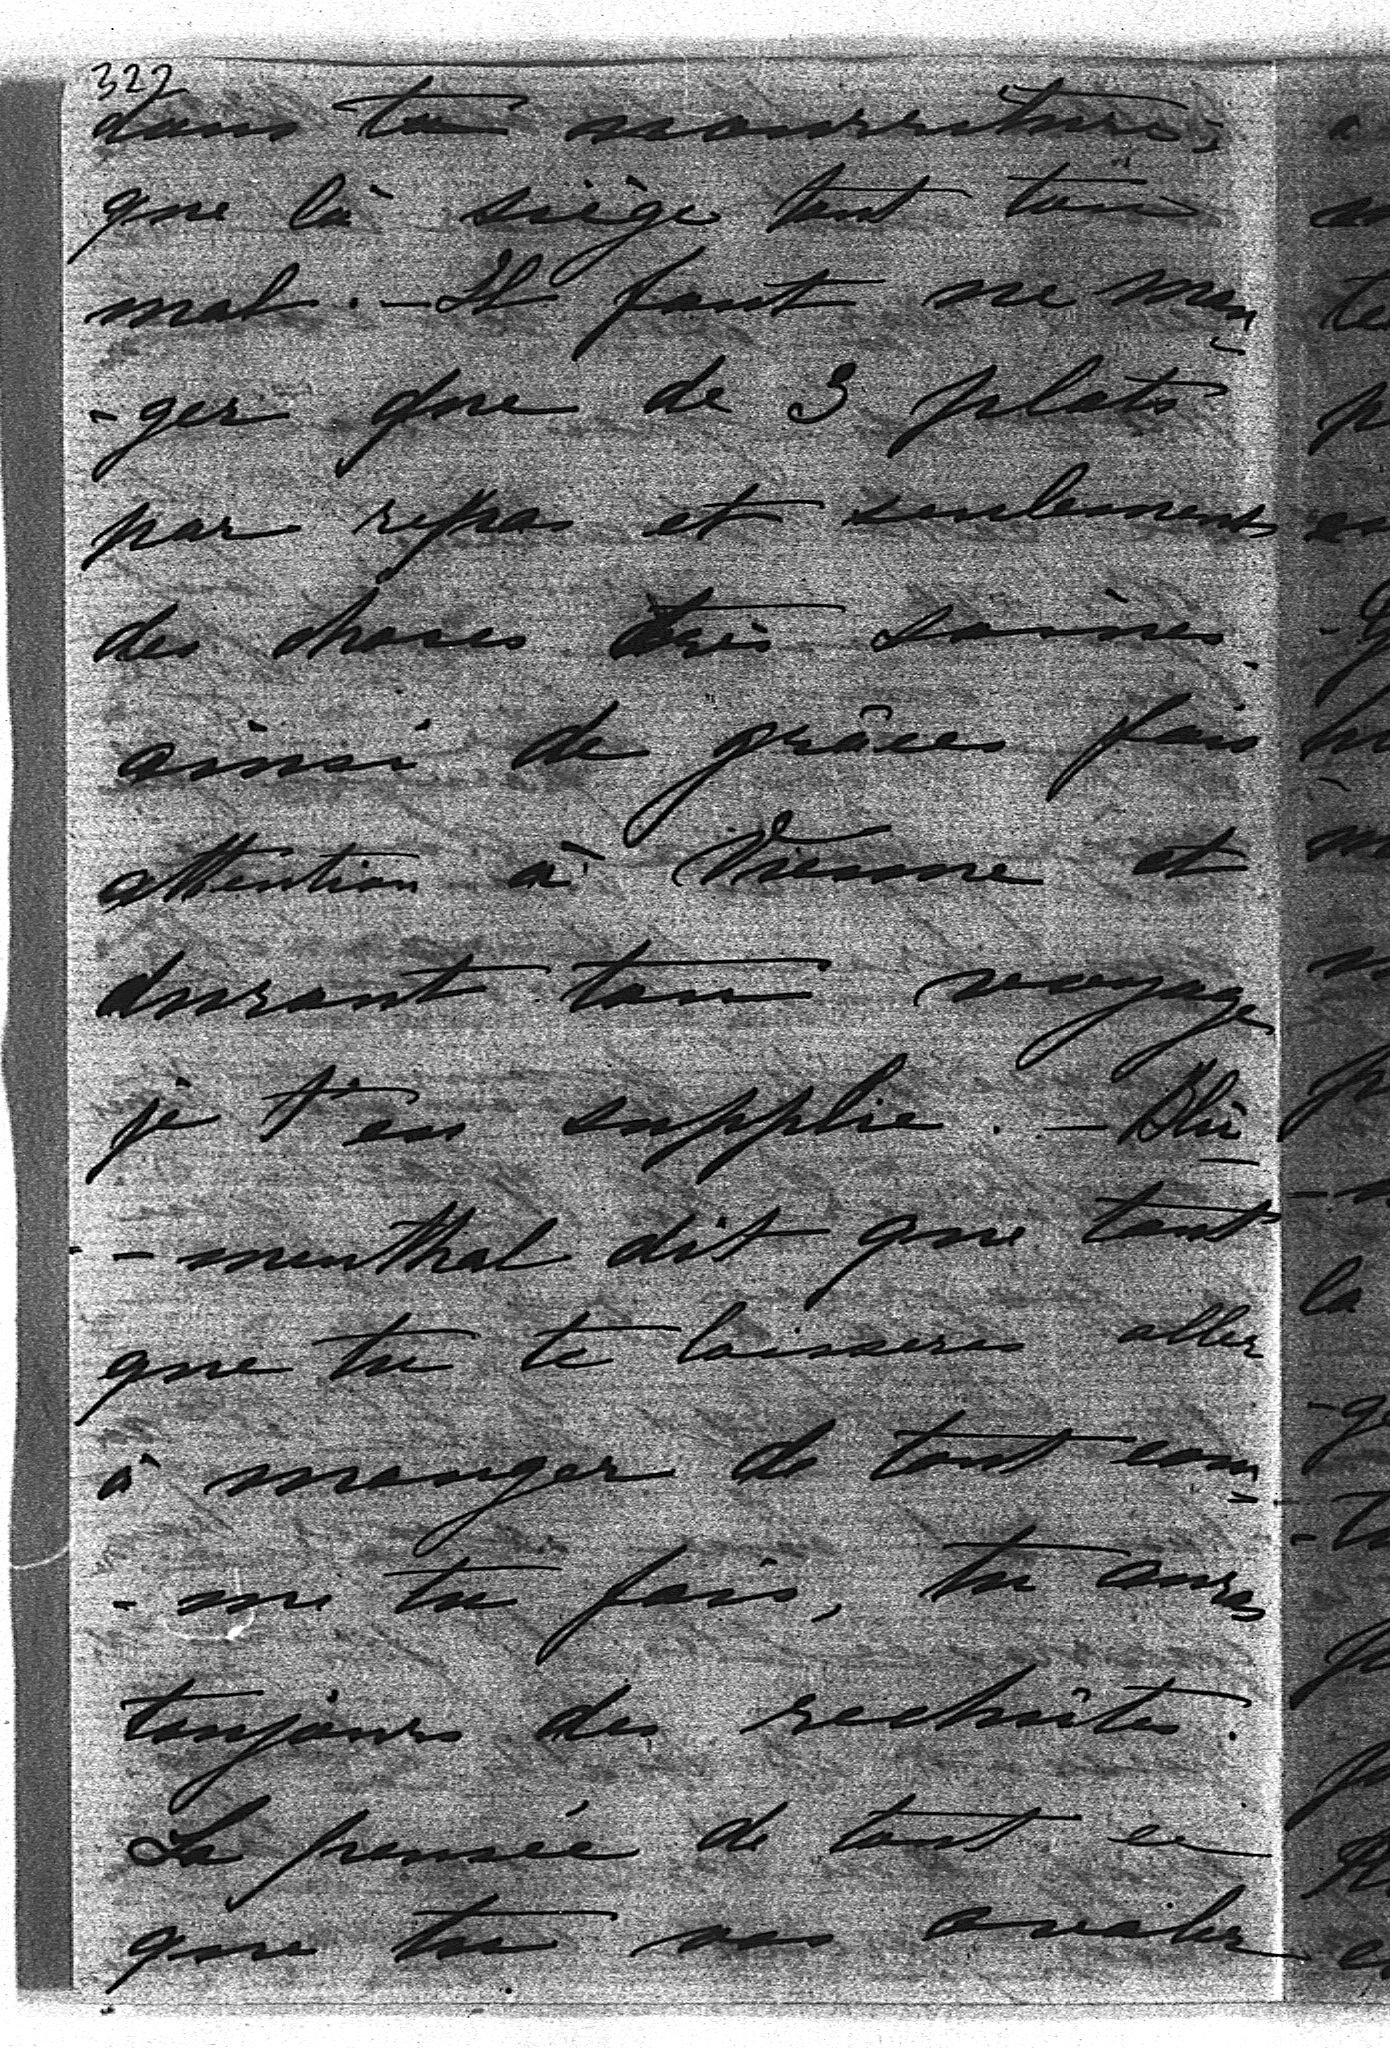 322
dans ta nourriture,
que là siège tout ton
mal. — Il faut ne man-
-ger que de 3 plats
par repas et seulement
des choses très saines.
ainsi de grâces fais
attention à Vienne et
durant ton voyage
je t'en supplie. — Blu-
-menthal dit que tant
que tu te laisseras aller
à manger de tout com-
-me tu fais, tu auras
toujours des rechûtes.
La pensée de tout ce
que tu vas avaler